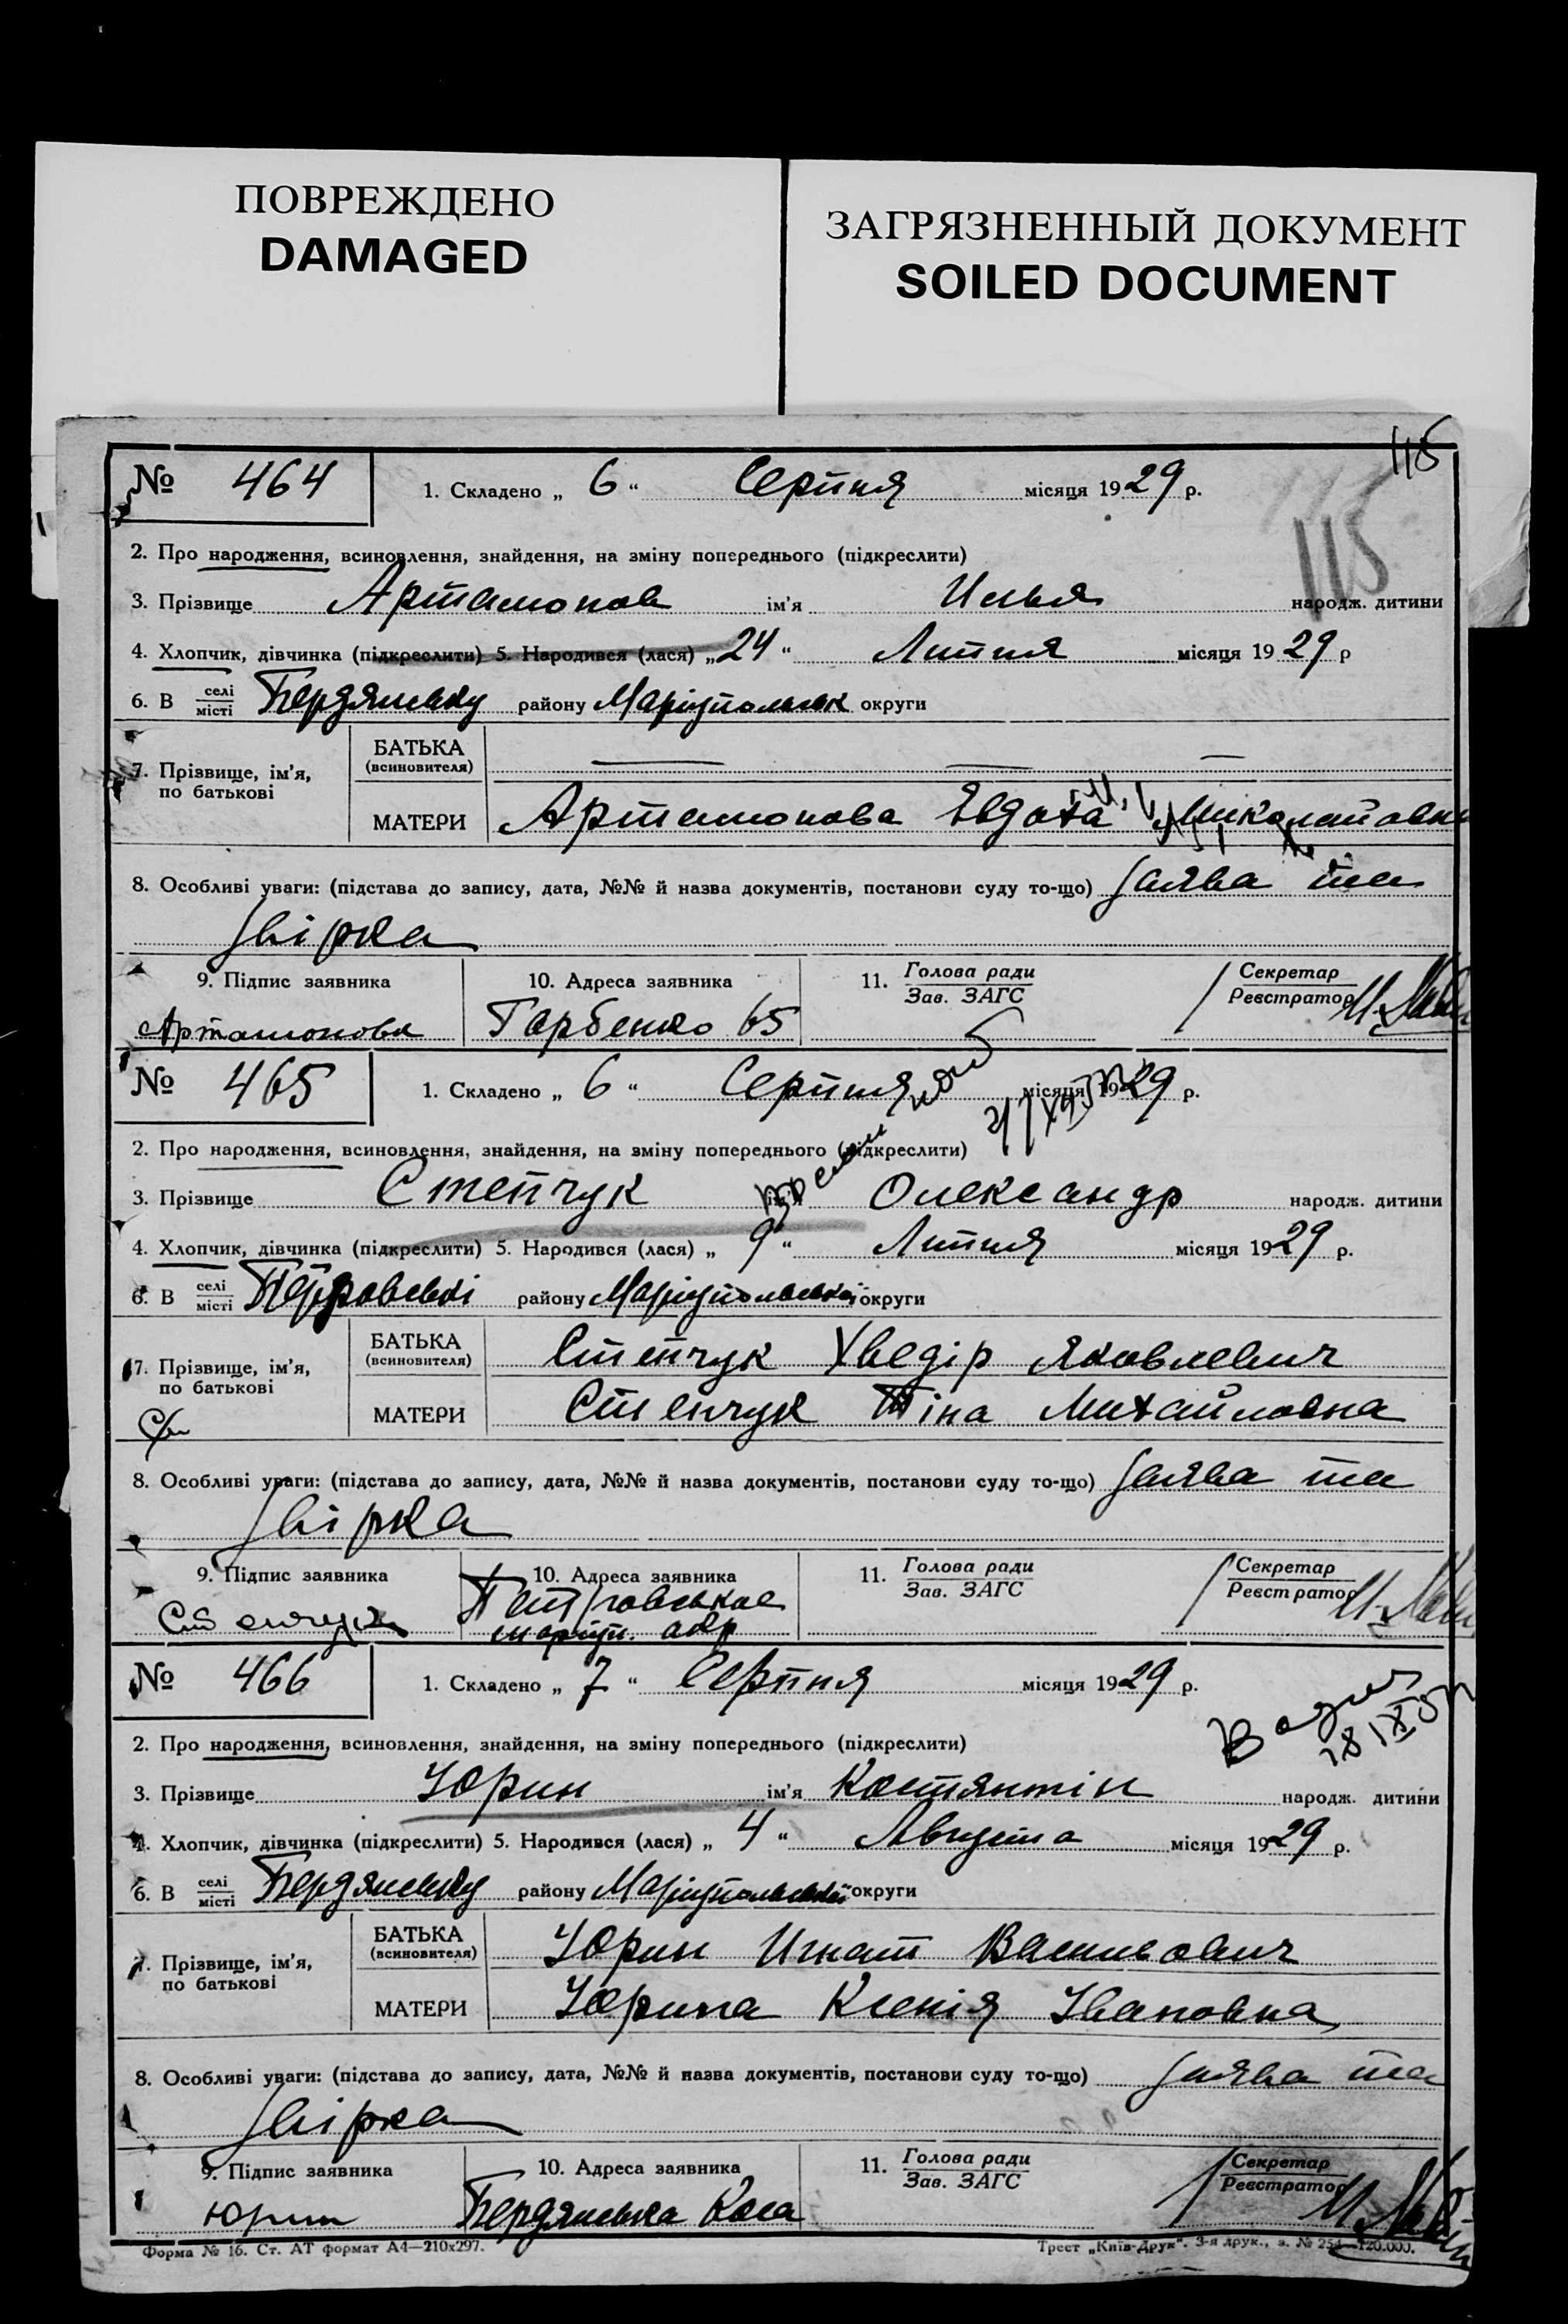 ПОВРЕЖДЕНО
DAMAGED
ЗАГРЯЗНЕННЫЙ ДОКУМЕНТ
SOILED DOCUMENT
115
115
№ 464 1. Складено „ 6 “ Серпня місяця 1929 р.
2. Про народження, всиновлення, знайдення, на зміну попереднього (підкреслити)
3. Прізвище Артамонов ім'я Илья народж. дитини
4. Хлопчик, дівчинка (підкреслити) 5. Народився (лася) „ 24 “ Липня місяця 1929 р
6. В селі місті Бердянську району Маріупольськ округи
7. Прізвище, ім'я, по батькові
БАТЬКА (всиновителя) — — —
МАТЕРИ Артамонова Евдоха Миколайовн
8. Особливі уваги: (підстава до запису, дата, №№ й назва документів, постанови суду то-що) Заява та
Звірка
9. Підпис заявника 10. Адреса заявника 11. Голова ради Зав. ЗАГС Секретар Реєстратор
Артамонова Горбенко 65
№ 465 1. Складено „ 6 “ Серпня місяця 1929 р.
2. Про народження, всиновлення, знайдення, на зміну попереднього (підкреслити)
3. Прізвище Степчук Олександр народж. дитини
4. Хлопчик, дівчинка (підкреслити) 5. Народився (лася) „ 9 “ Липня місяця 1929 р.
6. В селі місті Петровські району Маріупольської округи
7. Прізвище, ім'я, по батькові
БАТЬКА (всиновителя) Степчук Хведір Яковлевич
МАТЕРИ Степчук Тіна Михайловна
8. Особливі уваги: (підстава до запису, дата, №№ й назва документів, постанови суду то-що) Заява та
Звірка
9. Підпис заявника 10. Адреса заявника 11. Голова ради Зав. ЗАГС Секретар Реєстратор
Степчук Петровськое
маріуп. окр
№ 466 1. Складено „ 7 “ Серпня місяця 1929 р.
2. Про народження, всиновлення, знайдення, на зміну попереднього (підкреслити)
3. Прізвище Юрин ім'я Костянтін народж. дитини
4. Хлопчик, дівчинка (підкреслити) 5. Народився (лася) „ 4 “ Августа місяця 1929 р.
6. В селі місті Бердянську району Маріупольської округи
7. Прізвище, ім'я, по батькові
БАТЬКА (всиновителя) Юрин Игнат Васильович
МАТЕРИ Юрина Ксенія Івановна
8. Особливі уваги: (підстава до запису, дата, №№ й назва документів, постанови суду то-що) Заява та
Звірка
9. Підпис заявника 10. Адреса заявника 11. Голова ради Зав. ЗАГС Секретар Реєстратор
Юрин Бердянська Коса
Форма № 16. Ст. АТ формат А4—210х297. Трест „Київ-Друк“. 3-я друк., з. № 254—120.000.